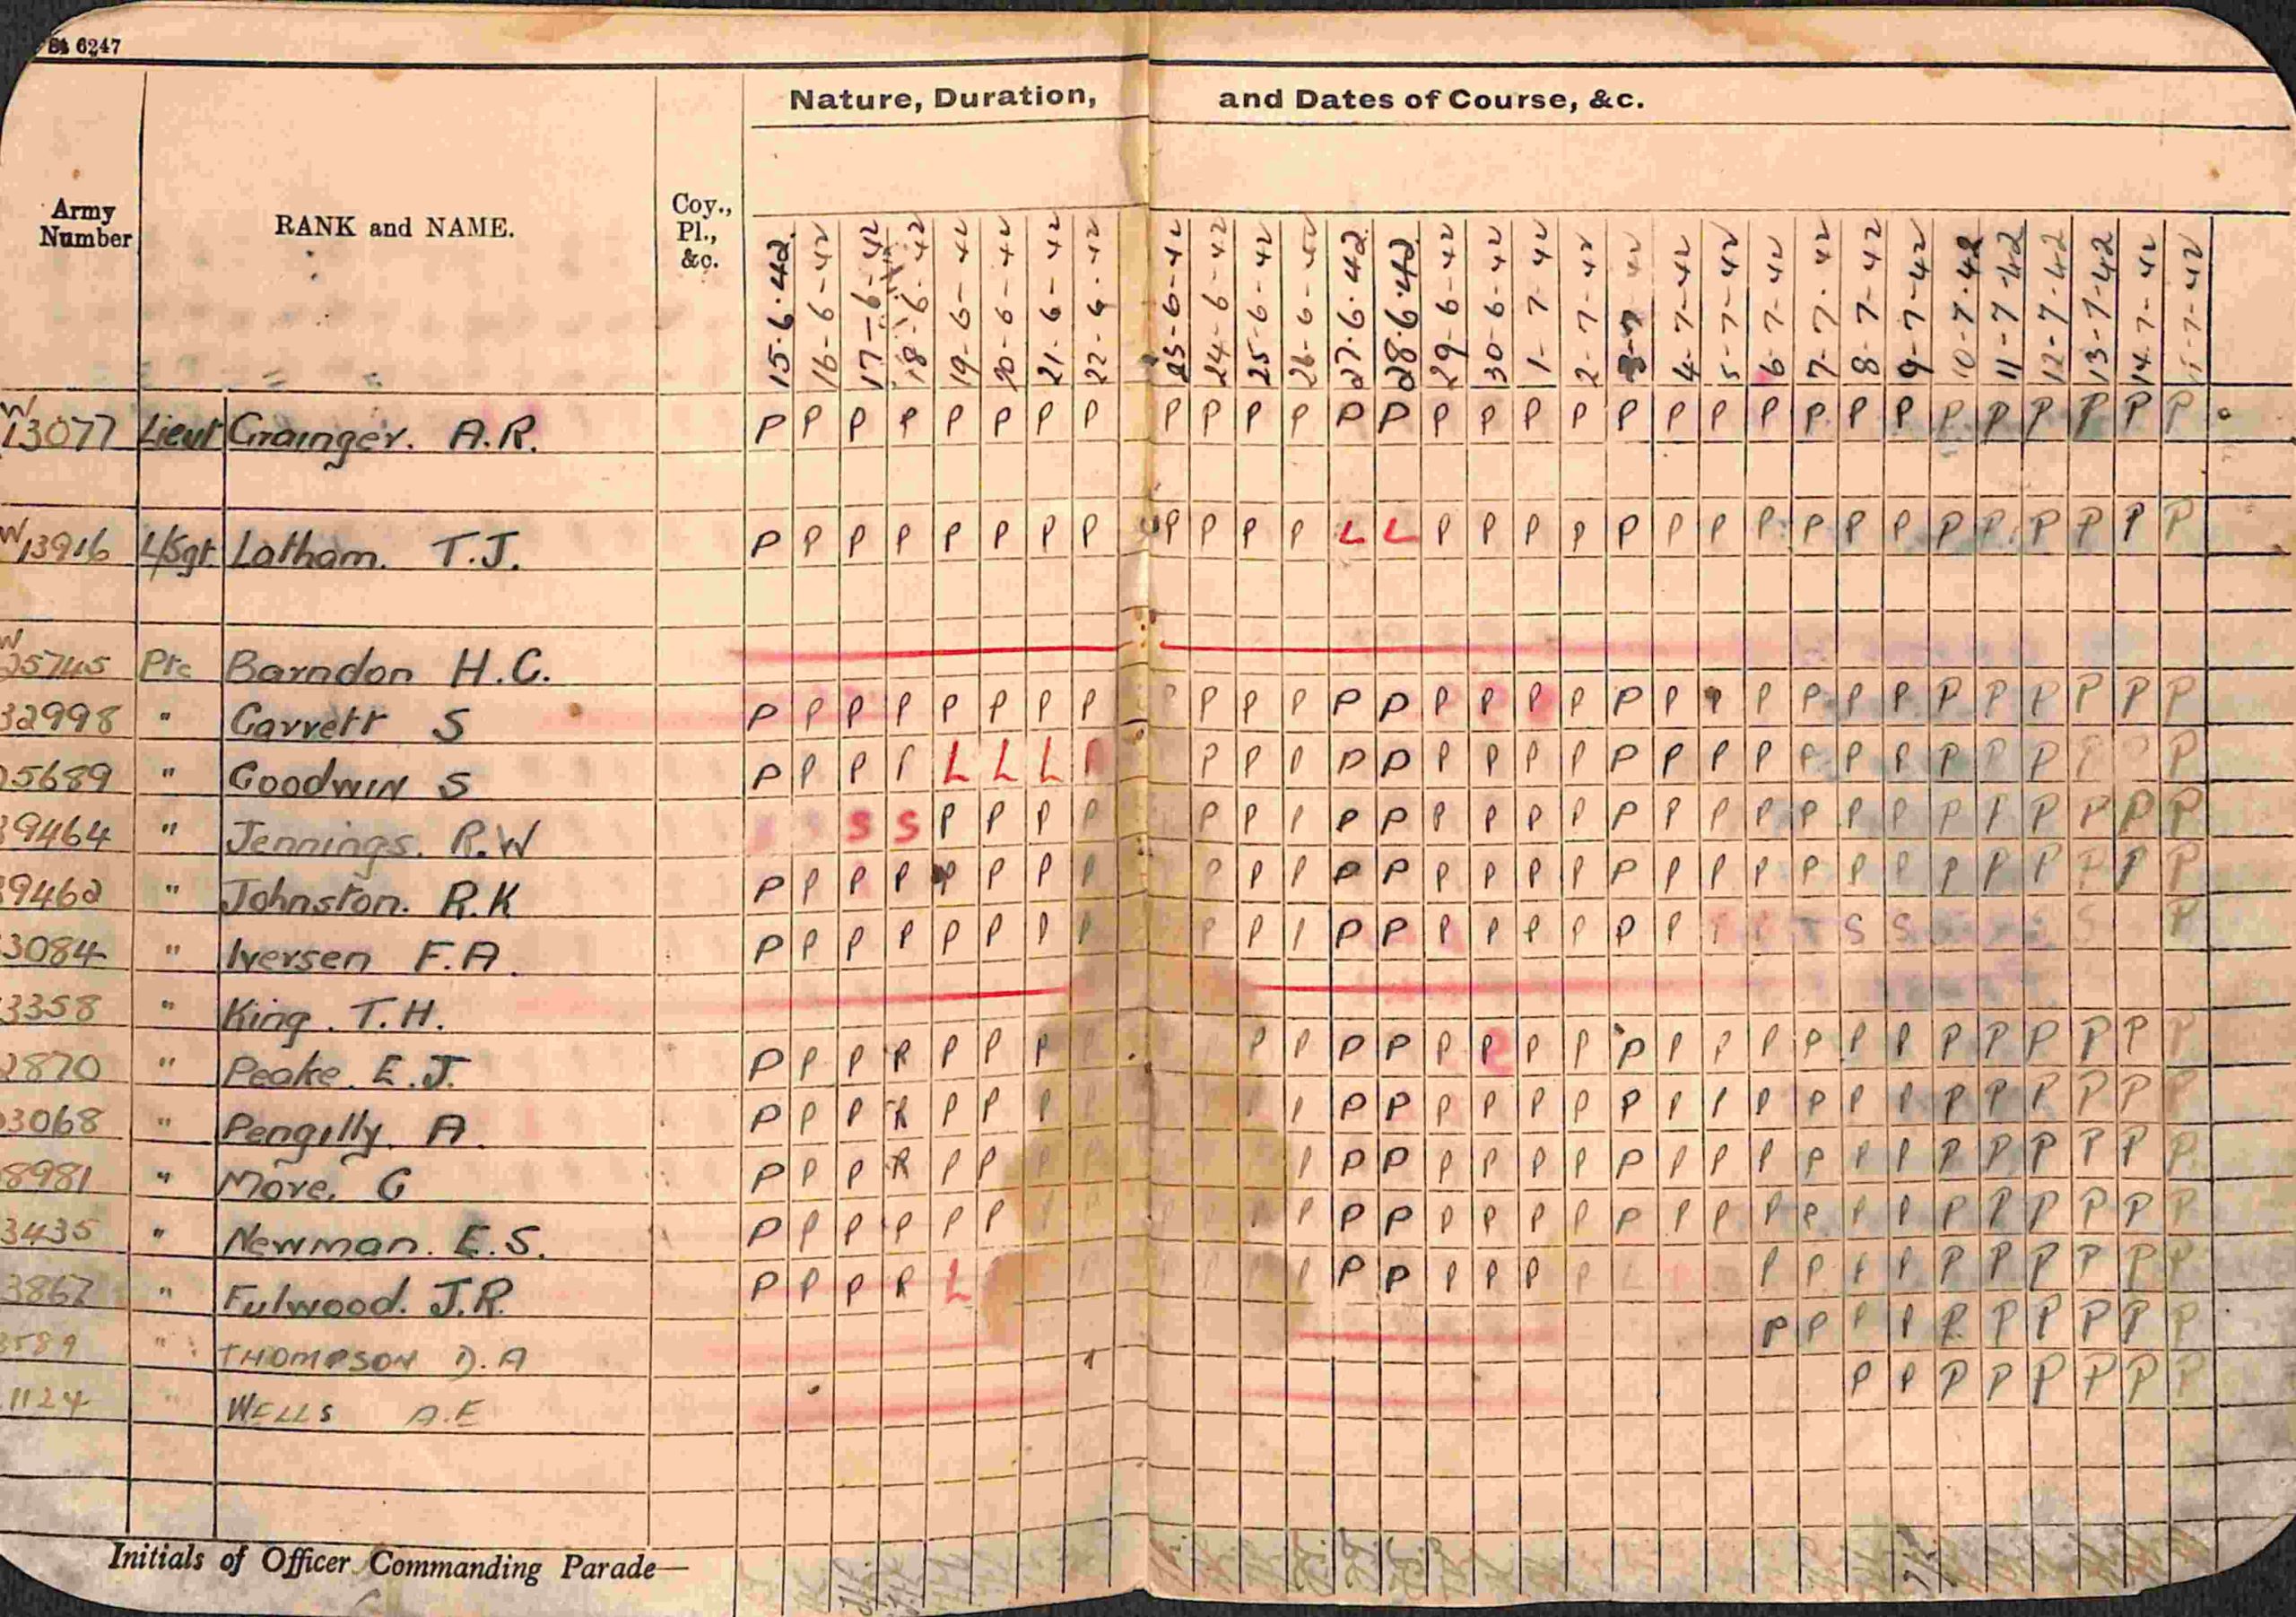 6247
Nature, Duration, and Dates of Course, &c.
Army Number
RANK and NAME.
Coy., Pl., &c.
15.6.42. 16-6-42 17-6-42 18-6-42 19-6-42 20-6-42 21-6-42 22-6-42 23-6-42 24-6-42 25-6-42 26-6-42 27.6.42 28.6.42 29-6-42 30-6-42 1-7-42 2-7-42 3-7-42 4-7-42 5-7-42 6-7-42 7-7-42 8-7-42 9-7-42 10-7-42 11-7-42 12-7-42 13-7-42 14-7-42 15-7-42
W 13077 Lieut Grainger. A.R. P P P P P P P P P P P P P P P P P P P P P P P P P P P P P P P
W 13916 L/Sgt Latham. T.J. P P P P P P P P P P P P L L P P P P P P P P P P P P P P P P P
W 25745 Pte Barndon H.C.
32998 " Garrett S P P P P P P P P P P P P P P P P P P P P P P P P P P P P P P P
5689 " Goodwin S P P P P L L L P P P P P P P P P P P P P P P P P P P P P P
9464 " Jennings. R.W S S P P P P P P P P P P P P P P P P P P P P P P P P P P
9462 " Johnston. R.K P P P P P P P P P P P P P P P P P P P P P P P P P P P P P P
3084 " Iversen F.A. P P P P P P P P P P P P P P P P P P P S S S P
3358 " King. T.H.
2870 " Peake. E.J. P P P R P P P P P P P P P P P P P P P P P P P P P P P P
3068 " Pengilly. A. P P P R P P P P P P P P P P P P P P P P P P P P P P P
8981 " More. G P P P R P P P P P P P P P P P P P P P P P P P P P P
3435 " Newman. E.S. P P P P P P P P P P P P P P P P P P P P P P P P P P
3867 " Fulwood. J.R. P P P R L P P P P P P P P P P P P P P P P P
3589 " THOMPSON D.A P P P P P P P P P P
1124 " WELLS A.E P P P P P P P P
Initials of Officer Commanding Parade—